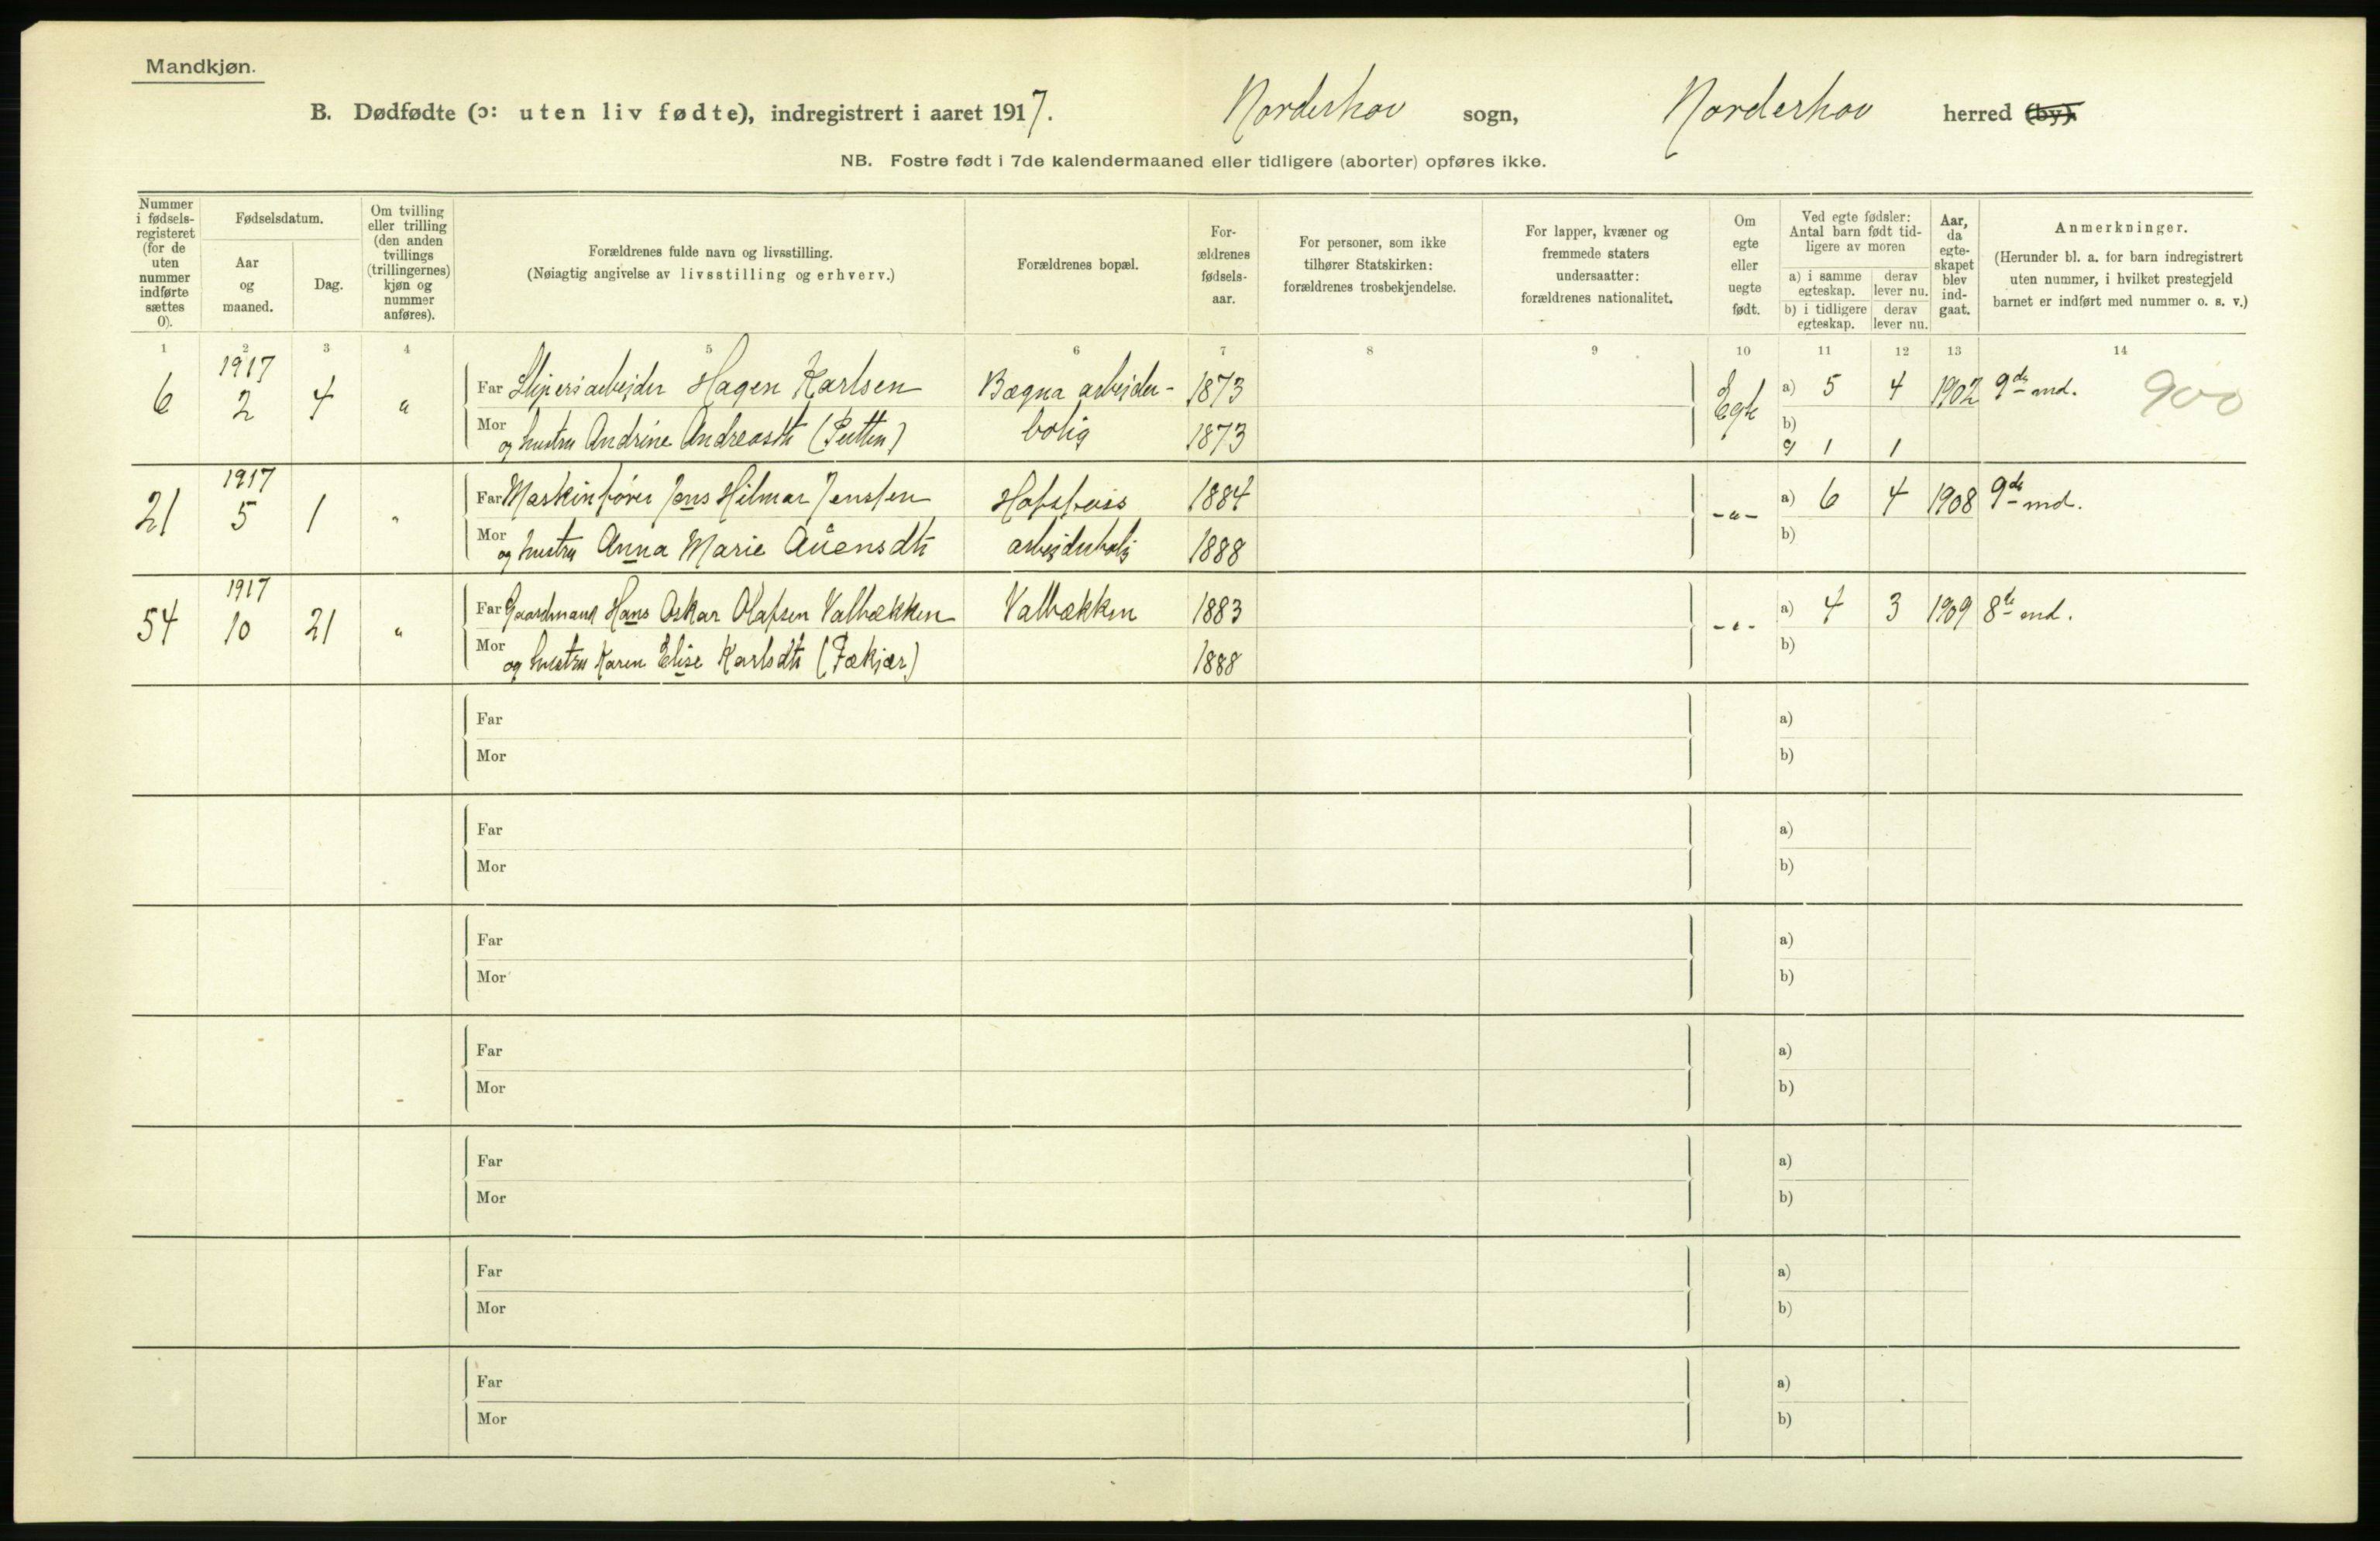 Mandkjøn.
B. Dødfødte (ɔ: uten liv fødte), indregistrert i aaret 1917. Norderhov sogn, Norderhov herred (by).
NB. Fostre født i 7de kalendermaaned eller tidligere (aborter) opføres ikke.
Nummer i fødsels-registeret (for de uten nummer indførte sættes 0).
Fødselsdatum.
Aar og maaned.
Dag.
Om tvilling eller trilling (den anden tvillings (trillingernes) kjøn og nummer anføres).
Forældrenes fulde navn og livsstilling.
(Nøiagtig angivelse av livsstilling og erhverv.)
Forældrenes bopæl.
For-ældrenes fødsels-aar.
For personer, som ikke tilhører Statskirken: forældrenes trosbekjendelse.
For lapper, kvæner og fremmede staters undersaatter: forældrenes nationalitet.
Om egte eller uegte født.
Ved egte fødsler: Antal barn født tid-ligere av moren
a) i samme egteskap.
derav lever nu.
b) i tidligere egteskap.
derav lever nu.
Aar, da egte-skapet blev ind-gaat.
Anmerkninger.
(Herunder bl. a. for barn indregistrert uten nummer, i hvilket prestegjeld barnet er indført med nummer o. s. v.)
1 2 3 4 5 6 7 8 9 10 11 12 13 14
1917
6 2 4 " Far Sliperiarbejder Hagen Karlsen Bægna arbejder- 1873 Egte a) 5 4 1902 9de md. 900
Mor og hustru Andrine Andreasdtr (Putten) bolig 1873 b)
1 1
1917
21 5 1 " Far Maskinfører Jens Hilmar Jensen Hofsfoss 1884 -"- a) 6 4 1908 9de md.
Mor og hustru Anna Marie Auensdtr arbejderbolig 1888 b)
1917
54 10 21 " Far Gaardmand Hans Oskar Olafsen Valbækken Valbækken 1883 -"- a) 4 3 1909 8de md.
Mor og hustru Karen Elise Karlsdtr (Fækjær) 1888 b)
Far a)
Mor b)
Far a)
Mor b)
Far a)
Mor b)
Far a)
Mor b)
Far a)
Mor b)
Far a)
Mor b)
Far a)
Mor b)